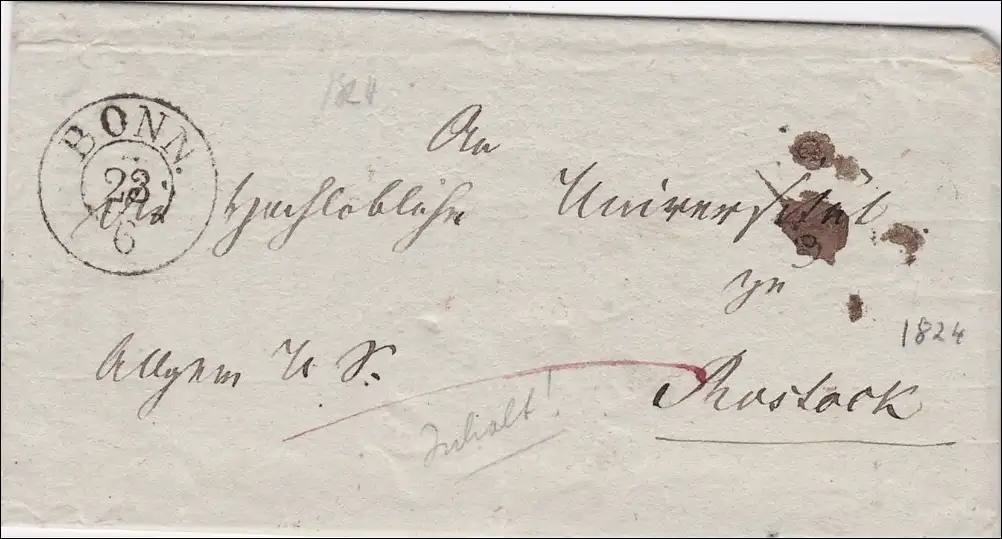 1824
BONN.
23
6
An
die Hochlöbliche Universität
zu
1824
Allgem U. S.
Rostock
Inhalt!